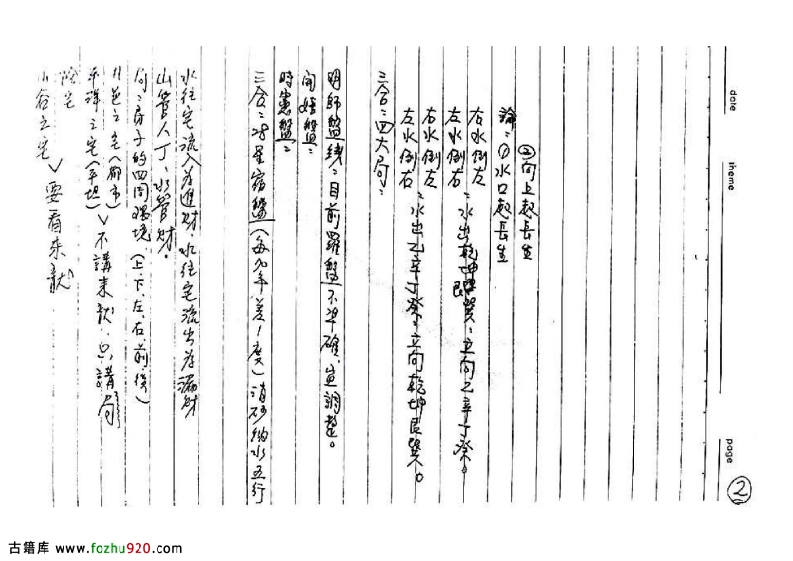 date
theme
page
②
②向上起長生
論：①水口起長生
右水倒左
左水倒右：水出乾坤艮巽：立向乙辛丁癸。
右水倒左
左水倒右：水出乙辛丁癸：立向乾坤艮巽。
三合：四大局：
明師盤綫：目前羅盤不準確，宜調整。
時憲盤：
三合：28星宿盤（每70年差1度）消砂納水五行
水往宅流入為進財，水往宅流出為漏財
山管人丁，水管財。
局：房子的四周環境（上、下、左、右、前、後）
井邑之宅（都市）
平洋之宅（平坦）＞不講來龍，只講局
陰宅
山谷之宅＞要看來龍
古籍库 www.fozhu920.com